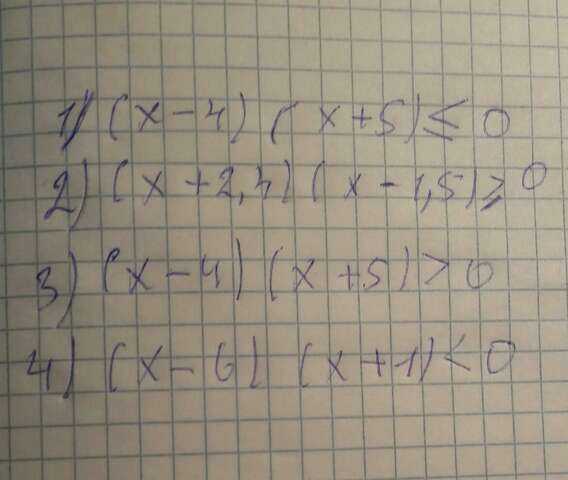 1) (x-4) (x+5) ≤ 0
2) (x+2,4) (x-1,5) ≥ 0
3) (x-4) (x+5) > 0
4) (x-6) (x+1) < 0